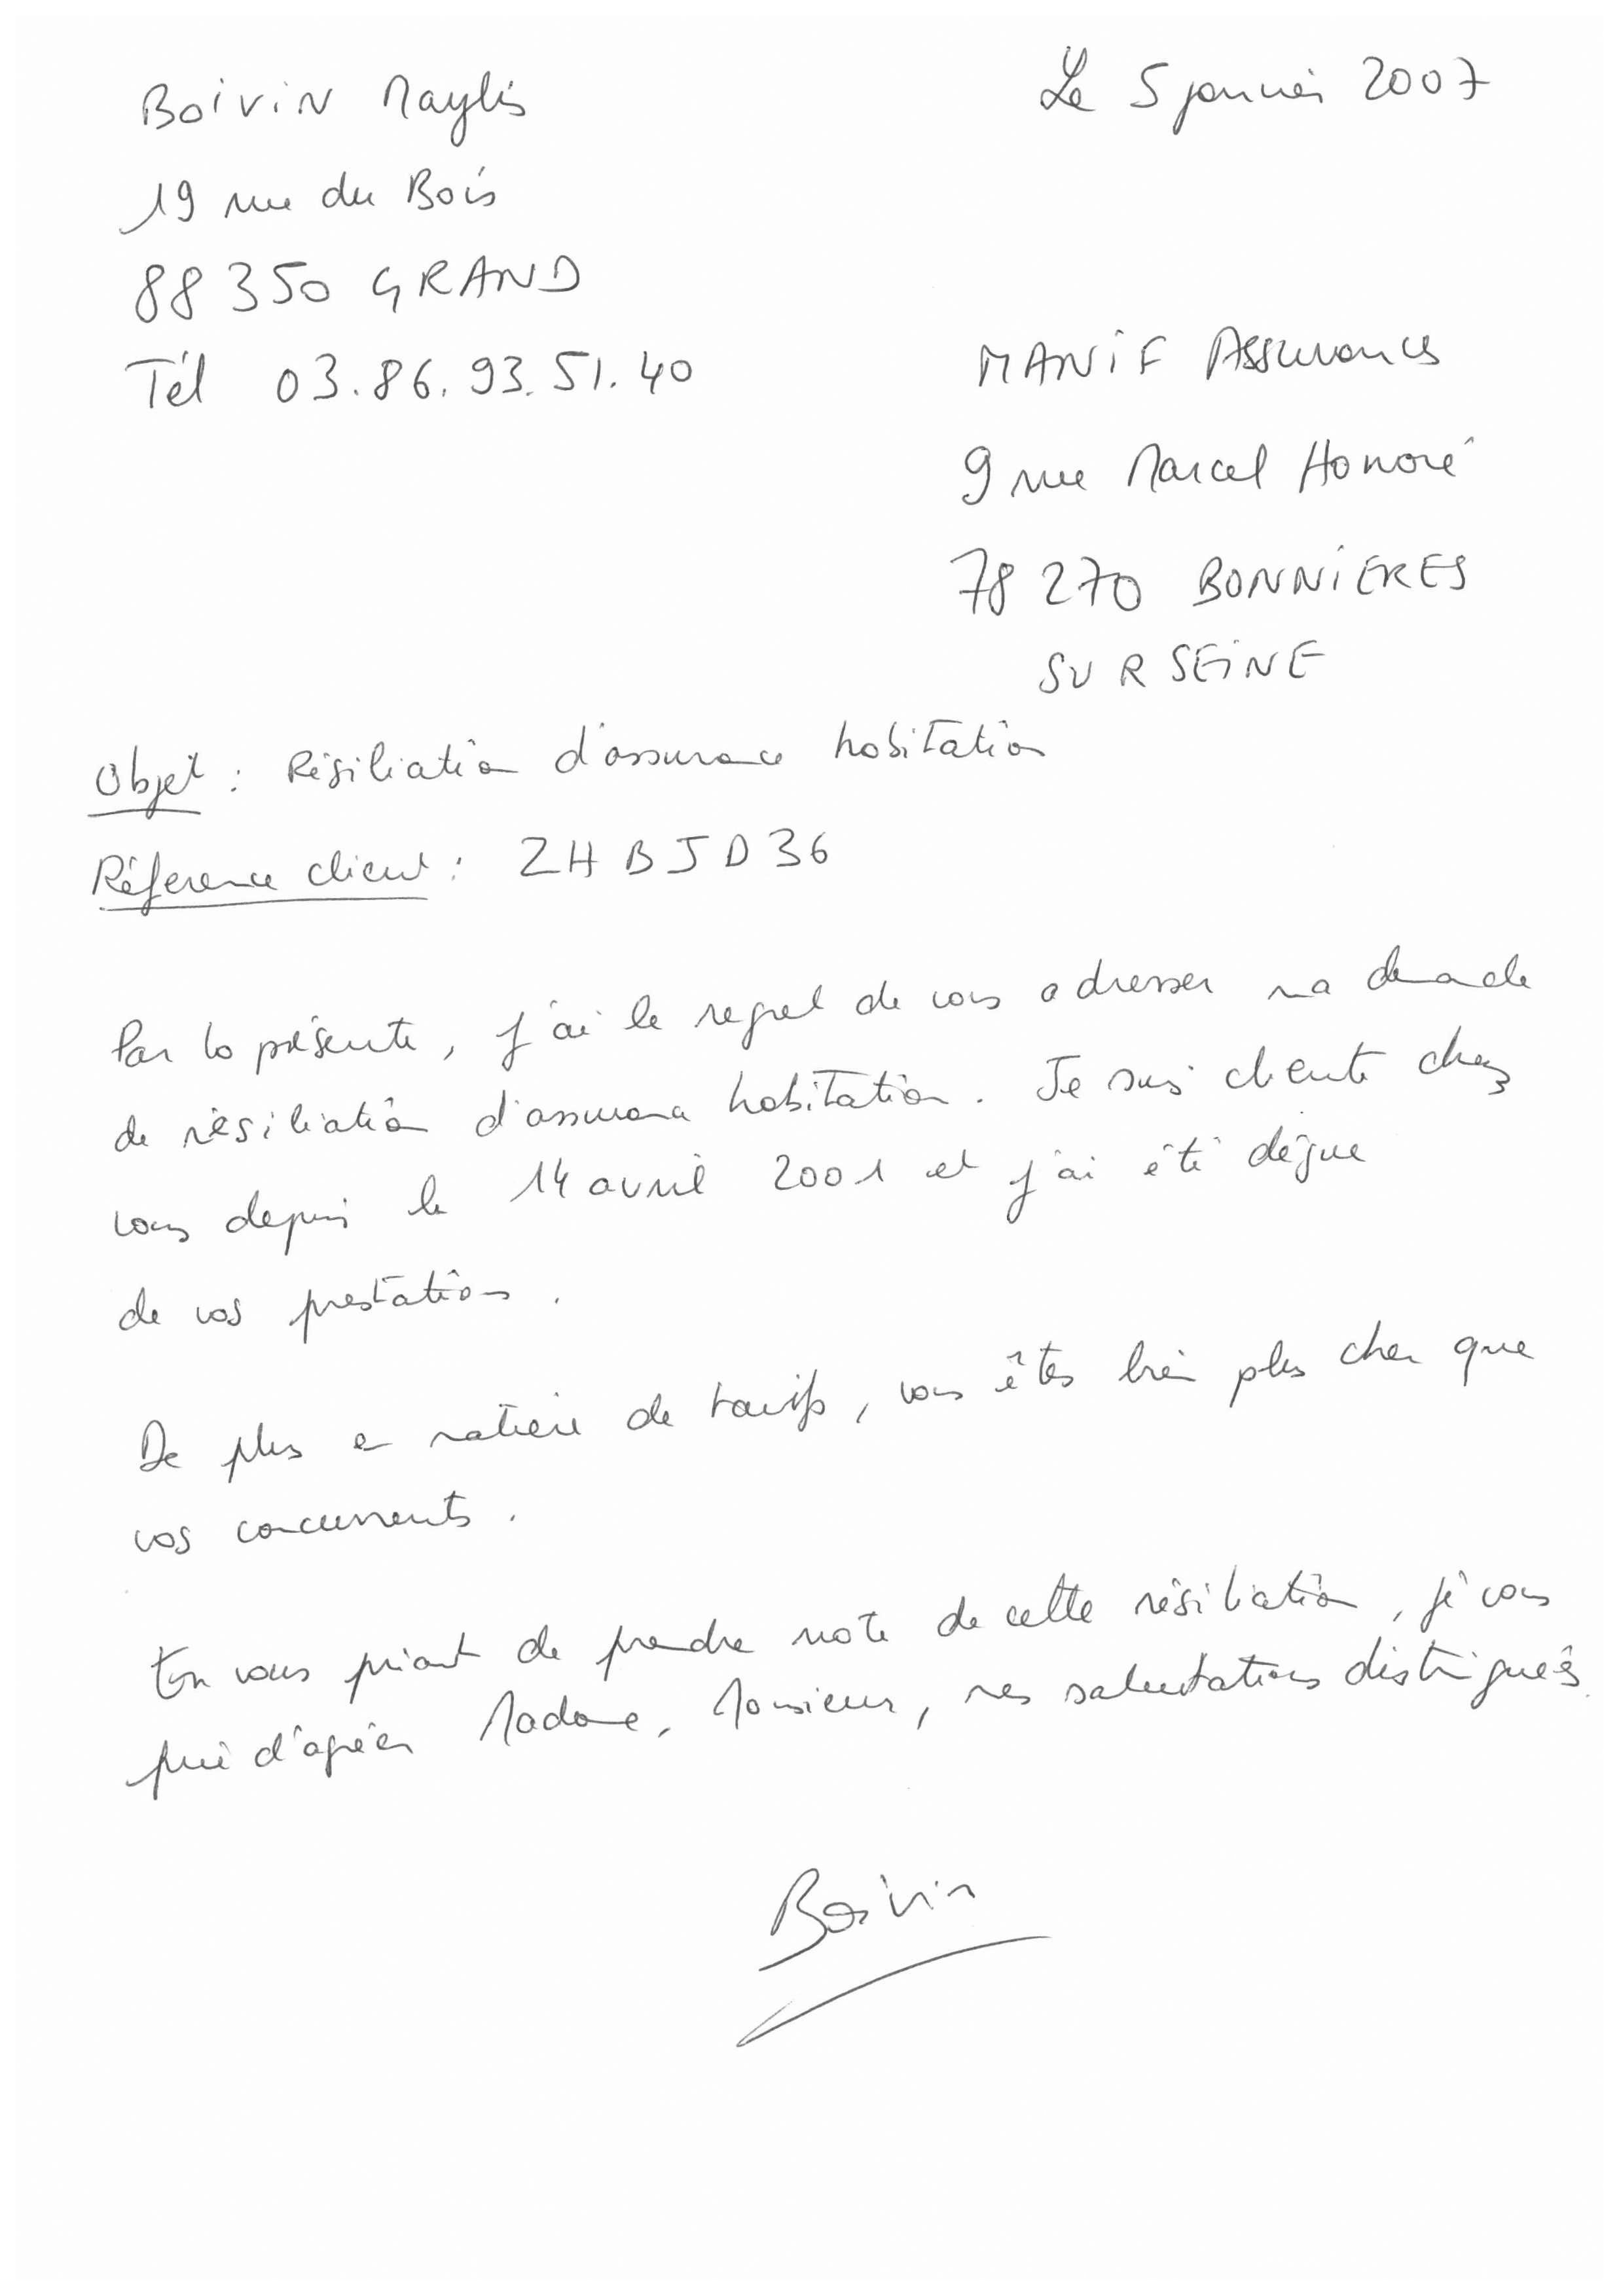 Boivin Maylis
Le 5 janvier 2007
19 rue du Bois
88 350 GRAND
Tél 03.86.93.51.40
MANIF Assurances
9 rue Marcel Honoré
78 270 BONNIERES
SUR SEINE
Objet : Résiliation d'assurance habitation
Réference client : ZHBJD36
Par la présente, j'ai le regret de vous adresser ma demande
de résiliation d'assurance habitation. Je suis cliente chez
vous depuis le 14 avril 2001 et j'ai été déçue
de vos prestations.
De plus en matière de tarifs, vous êtes bien plus cher que
vos concurrents.
En vous priant de prendre note de cette résiliation, je vous
prie d'agréer Madame, Monsieur, mes salutations distingués.
Boivin